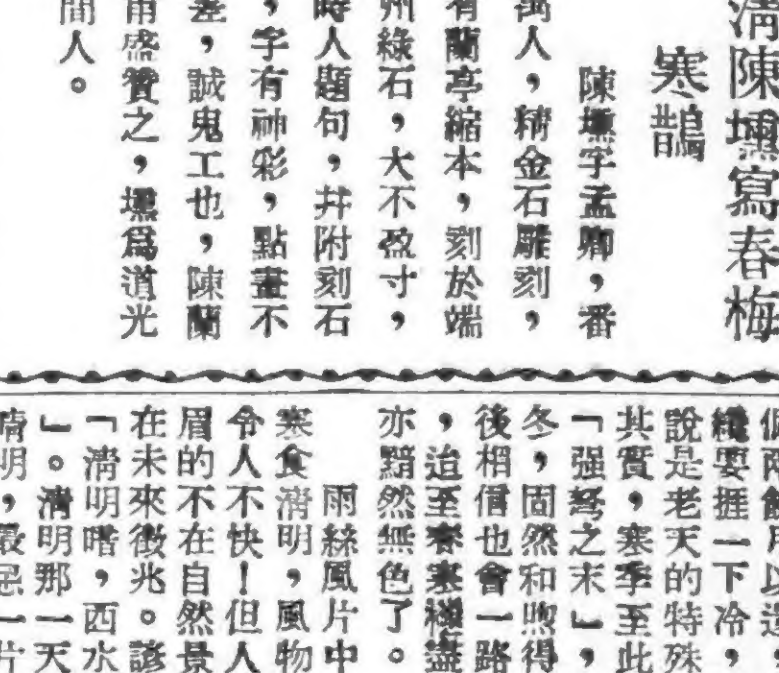 清陳壎寫春梅
寒鵲
陳壎字孟卿，番
萬人，精金石雕刻，
有蘭亭縮本，刻於端
州綠石，大不盈寸，
時人題句，幷附刻石
，字有神彩，點畫不
差，誠鬼工也，陳蘭
甫盛贊之，壎爲道光
間人。
個兩餘月以還，
纔要捱一下冷，
說是老天的特殊
其實，寒季至此
「强弩之末」，
冬，固然和煦得
後相信也會一路
，迨至春寒盡
亦黯然無色了。
雨絲風片中
寒食淸明，風物
令人不快！但人
眉的不在自然景
在未來徵兆。諺
「淸明暗，西水
」。淸明那一天
晴明，最忌一片